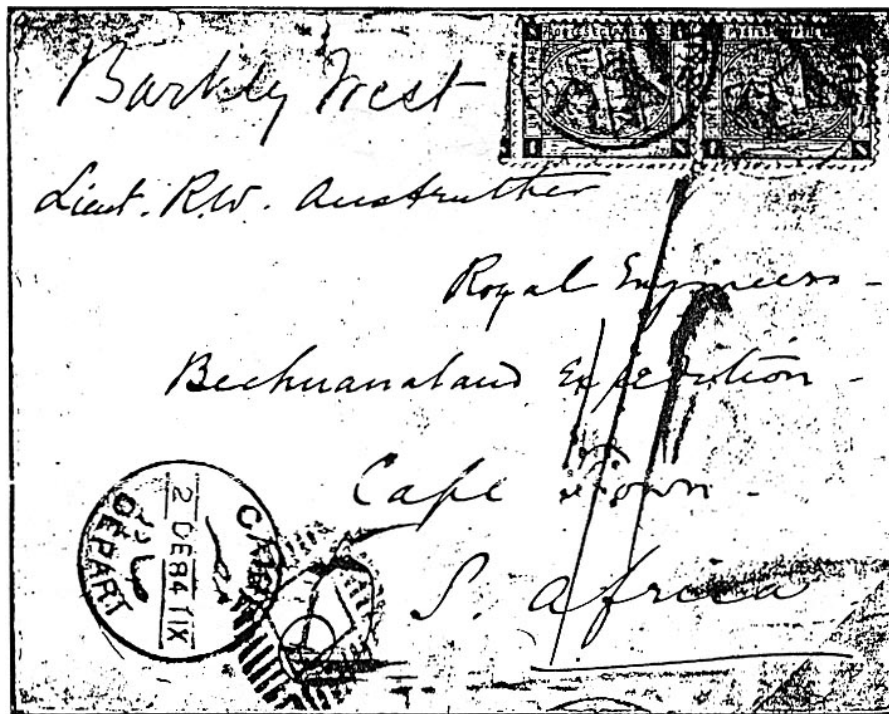 Barkly West
Lieut. R.W. Anstruther
Royal Engineers -
Bechuanaland Expedition -
Cape Town -
S. Africa
DEPART
2 DE 84 11X